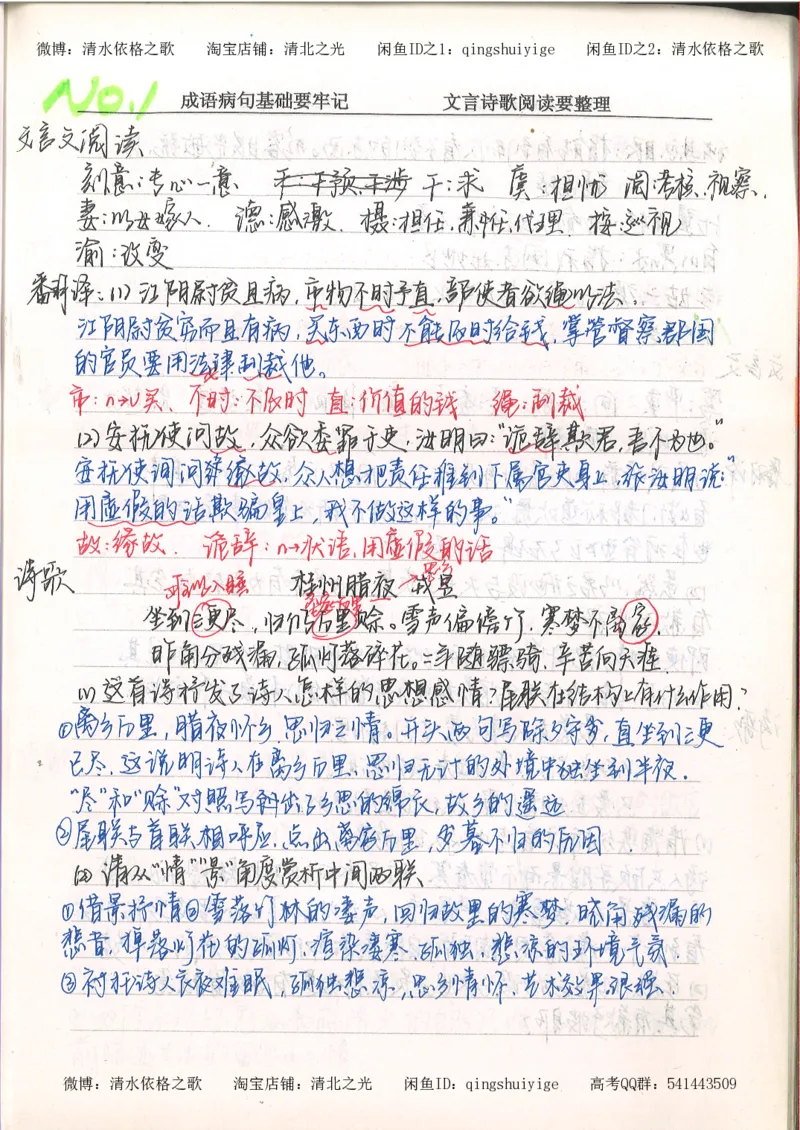 微博：清水依格之歌 淘宝店铺：清北之光 闲鱼ID之1：qingshuiyige 闲鱼ID之2：清水依格之歌
No.1 成语病句基础要牢记 文言诗歌阅读要整理
文言文阅读
刻意：专心一意 干：求 虞：担忧 阅：考核、视察、
妻：以女嫁人 德：感激 摄：担任，兼任，代理 按：巡视
渝：改变
翻译：(1) 江阴尉贫且病，市物不时予直，部使者欲绳以法。
江阴尉贫穷而且有病，买东西时不能及时给钱，掌管督察郡国
的官员要用法律制裁他。
市：n→v买、 不时：不及时 直：价值的钱 绳：制裁
(2) 安抚使问故，众欲委罪于吏，汝明曰："诡辞欺君，吾不为也。"
安抚使询问缘故，众人想把责任推到下属官吏身上，张汝明说："
用虚假的话欺骗皇上，我不做这样的事。"
故：缘故 诡辞：n→状语，用虚假的话
诗歌 桂州腊夜 戎昱
坐到三更尽，归仍万里赊。雪声偏傍竹，寒梦不离家。
晓角分残漏，孤灯落碎花。二年随骠骑，辛苦向天涯。
(1) 这首诗抒发了诗人怎样的思想感情？尾联在结构上有什么作用？
①离乡万里，腊夜怀乡，思归之情。开头两句写除夕守岁，直坐到三更
已尽，这说明诗人在离乡万里、思归无计的处境中独坐到半夜．
"尽"和"赊"对照写出了乡思的绵长，故乡的遥远
②尾联与首联相呼应，点出离家万里，岁暮不归的原因．
(2) 请从"情""景"角度赏析中间两联
①借景抒情②雪落竹林的凄声，回归故里的寒梦，晓角残漏的
悲音，掉落灯花的孤灯，渲染凄寒、孤独、悲凉的环境气氛．
③衬托诗人长夜难眠，孤独悲凉，思乡情怀，艺术效果很强．
微博：清水依格之歌 淘宝店铺：清北之光 闲鱼ID：qingshuiyige 高考QQ群：541443509